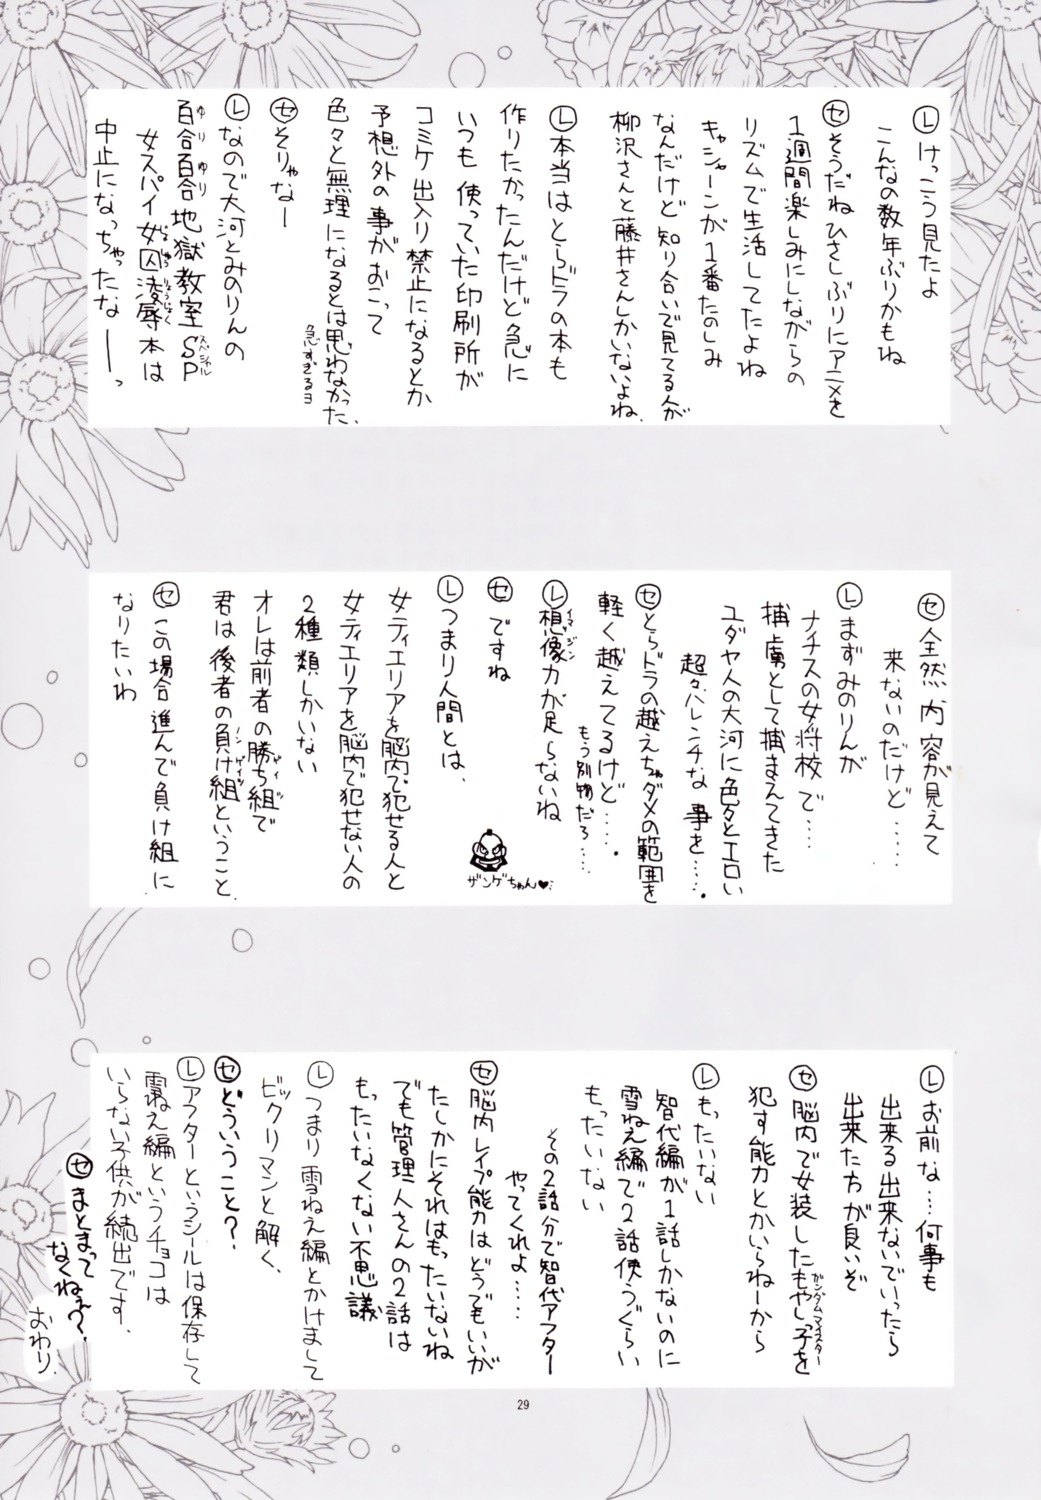 Ⓛけっこう見たよ
こんなの数年ぶりかもね
㋝そうだねひさしぶりにアニメを
1週間楽しみにしながらの
リズムで生活してたよね
キャシャーンが1番たのしみ
なんだけど知り合いで見てる人が
柳沢さんと藤井さんしかいないよね。
Ⓛ本当はとらドラの本も
作りたかったんだけど急に
いつも使っていた印刷所が
コミケ出入り禁止になるとか
予想外の事がおこって
色々と無理になるとは思わなかった。
急すぎるヨ
㋝そりゃなー
Ⓛなので大河とみのりんの
百合百合地獄教室SP
ゆりゆり
スペシャル
女スパイ女囚凌辱本は
じょしゅうりょうじょく
中止になっちゃったなーっ
㋝全然内容が見えて
来ないのだけど……
Ⓛまずみのりんが
ナチスの女将校で…
捕虜として捕まえてきた
ユダヤ人の大河に色々とエロい
超々ハレンチな事を…..
㋝とらドラの越えちゃダメの範囲を
軽く越えてるけど….
もう別物だろ….
Ⓛ想像力が足らないね
イマジン
㋝ですね
ザンゲちゃん♥:
Ⓛつまり人間とは、
女ティエリアを脳内で犯せる人と
女ティエリアを脳内で犯せない人の
2種類しかいない
オレは前者の勝ち組で
ゲイツ
君は後者の負け組ということ
ノンゲイツ
㋝この場合進んで負け組に
なりたいわ
Ⓛお前な…何事も
出来る出来ないでいったら
出来た方が良いぞ
㋝脳内で女装したもやしっ子を
ガンダムマイスター
犯す能力とかいらねーから
Ⓛもったいない
智代編が1話しかないのに
雪ねえ編で2話使うぐらい
もったいない
その2話分で智代アフター
やってくれよ……
㋝脳内レイプ能力はどうでもいいが
たしかにそれはもったいないね
でも管理人さんの2話は
もったいなくない不思議
Ⓛつまり雪ねえ編とかけまして
ビックリマンと解く、
㋝どういうこと?
Ⓛアフターというシールは保存して
雪ねえ編というチョコは
いらない子供が続出です、
㋝まとまって
なくねぇ?
おわり.
29